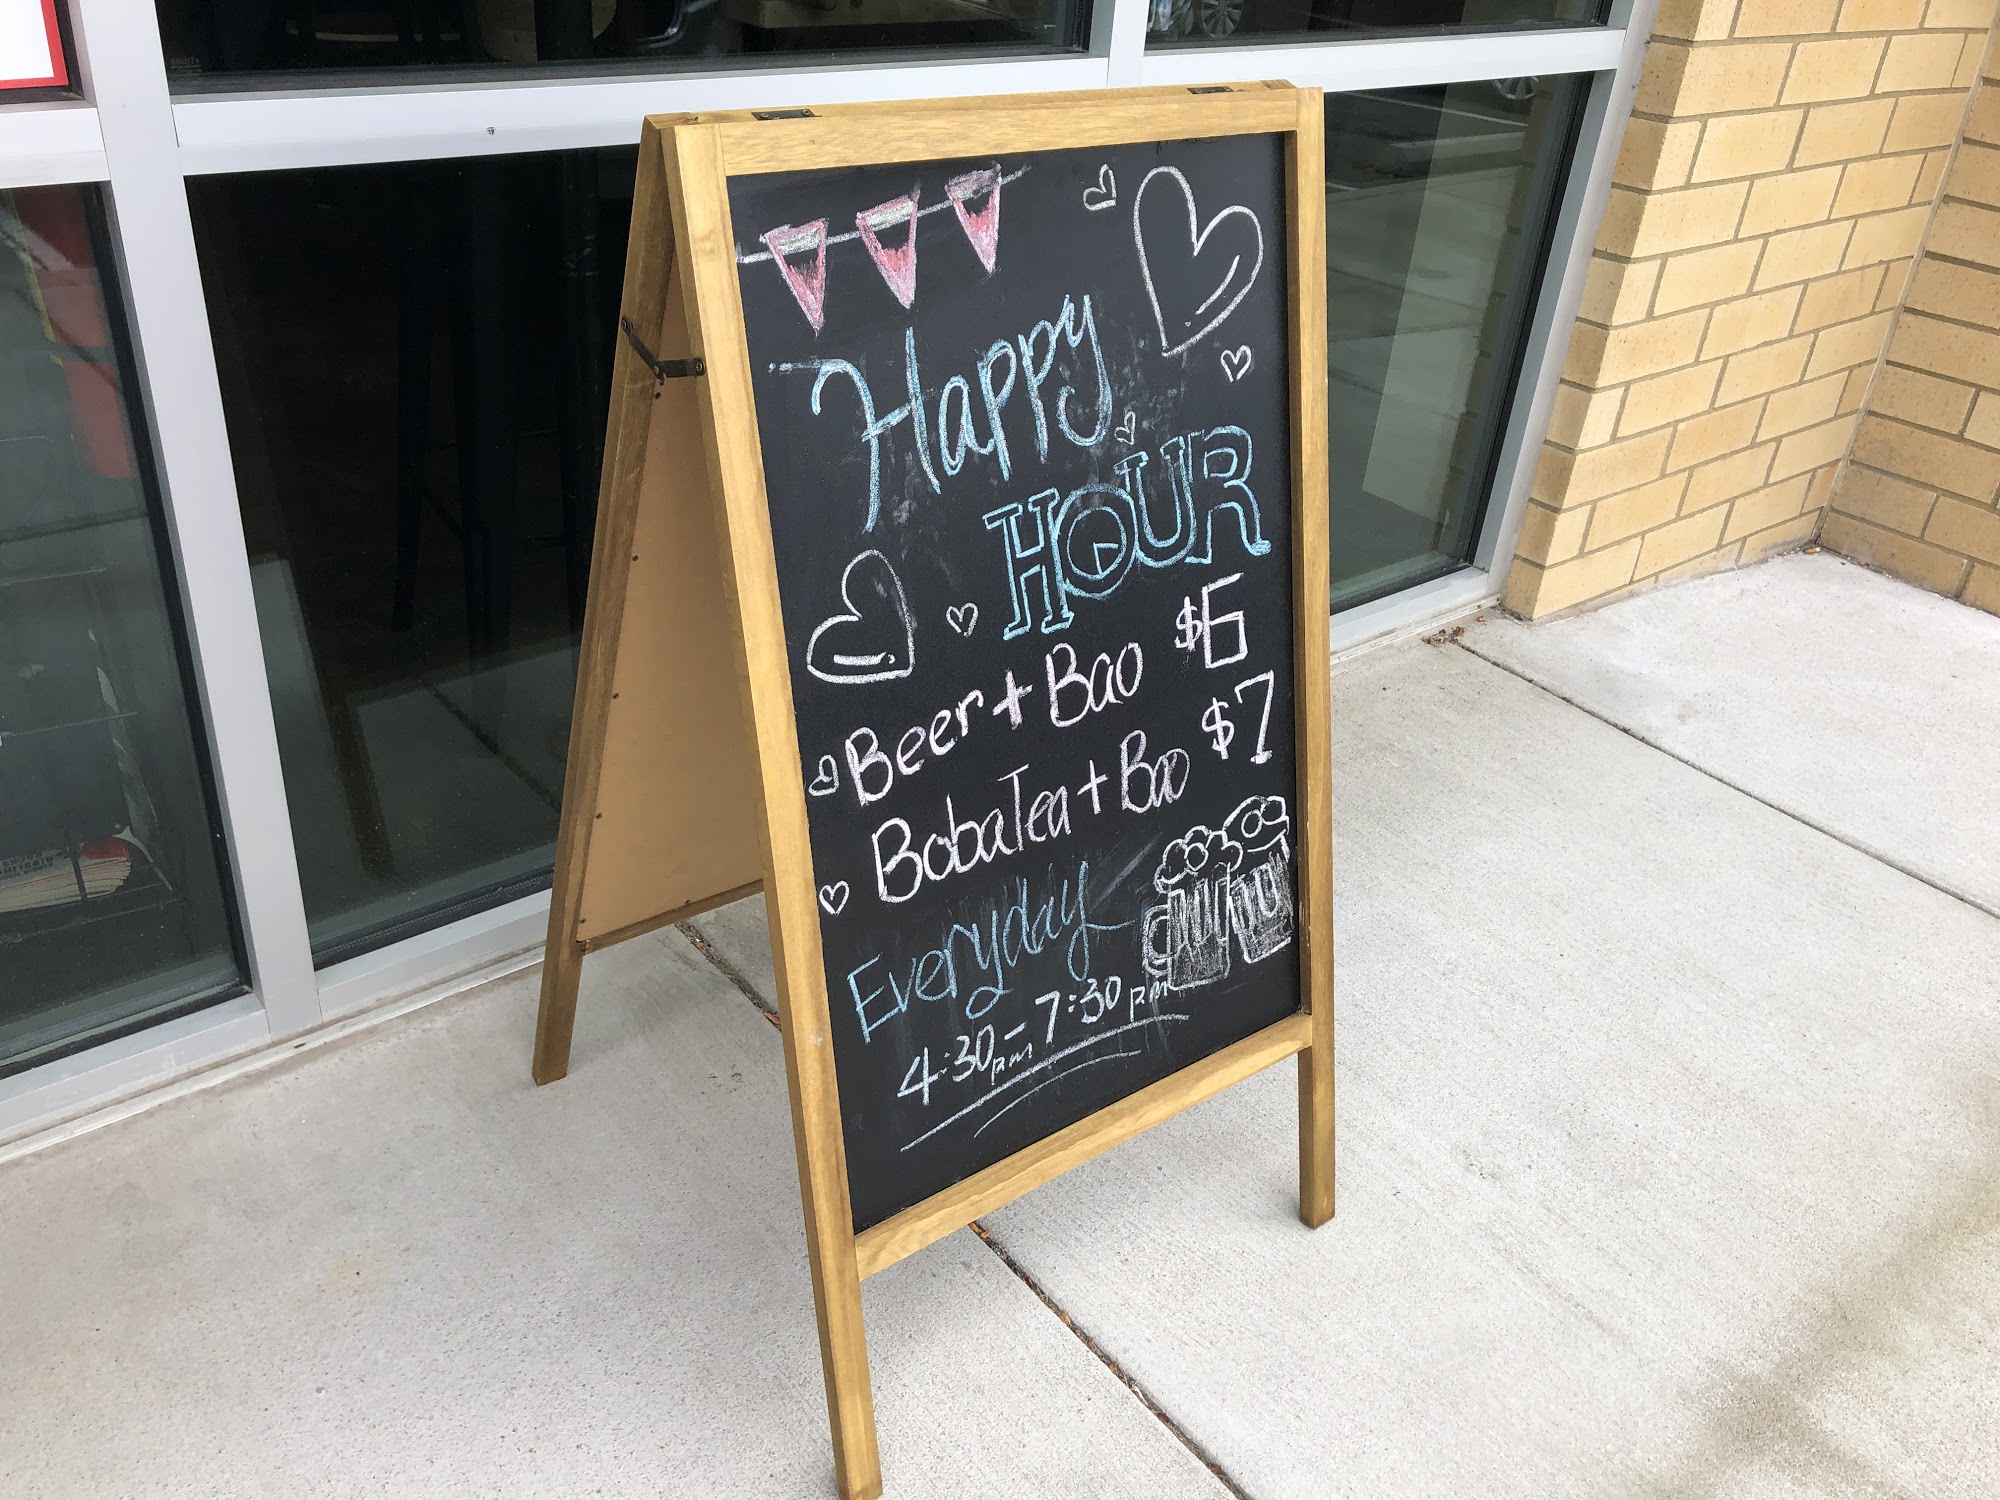 Happy
HOUR
Beer + Bao $6
Boba Tea + Bao $7
Everyday
4:30pm - 7:30pm